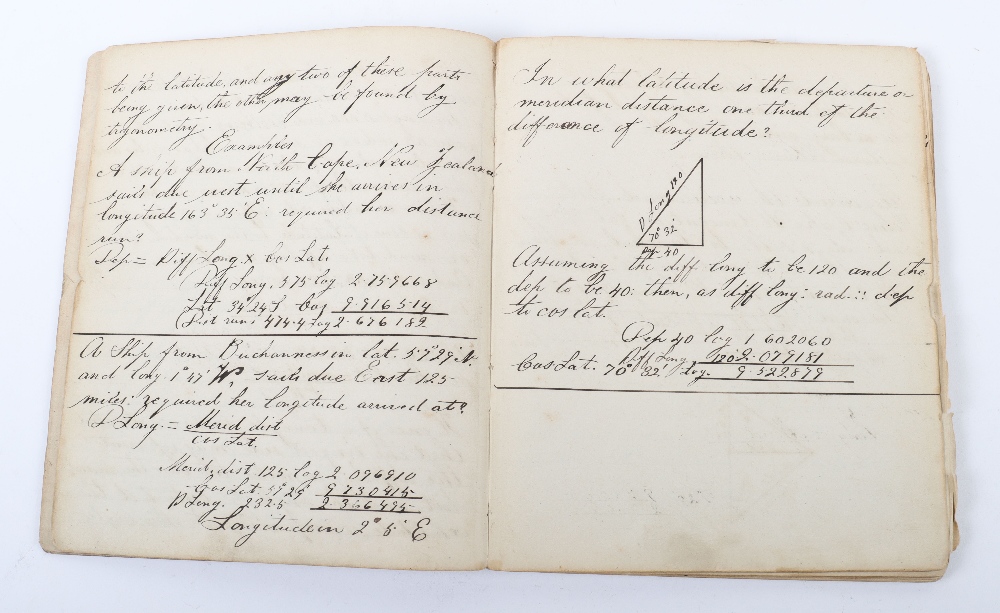 to the latitude, and any two of these parts
being given, the other may be found by
trigonometry.
Examples
A ship from North Cape, New Zealand
sails due west until she arrives in
longitude 163° 35' E: required her distance
run?
Dep = Diff Long. x Cos Lat.
Diff Long. 575 log 2.759668
Lat 34° 24' S Cos 9.916514
Dist run: 474.4 Log 2.676182
A Ship from Buchanness in lat. 57° 29' N.
and long. 1° 47' W, sails due East 125
miles: required her longitude arrived at?
D Long. = Merid dist
cos Lat.
Merid. dist 125 log 2 096910
Cos Lat. 57° 29' 9 730415
D Long. 232.5 2.366495
Longitude in 2° 5' E
In what latitude is the departure or
meridian distance one third of the
difference of longitude?
D Long 120
70° 32'
Dep 40
Assuming the diff long to be 120 and the
dep to be 40: then, as diff long: rad :: dep
to cos lat.
Dep 40 log 1 602060
Diff Long 120 2.079181
Cos Lat. 70° 32' Log. 9.522879